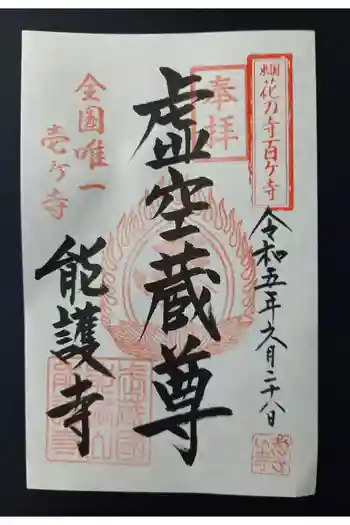 東国花の寺百ケ寺
奉拝
令和五年六月二十八日
虚空蔵尊
全国唯一
壱ヶ寺
能護寺